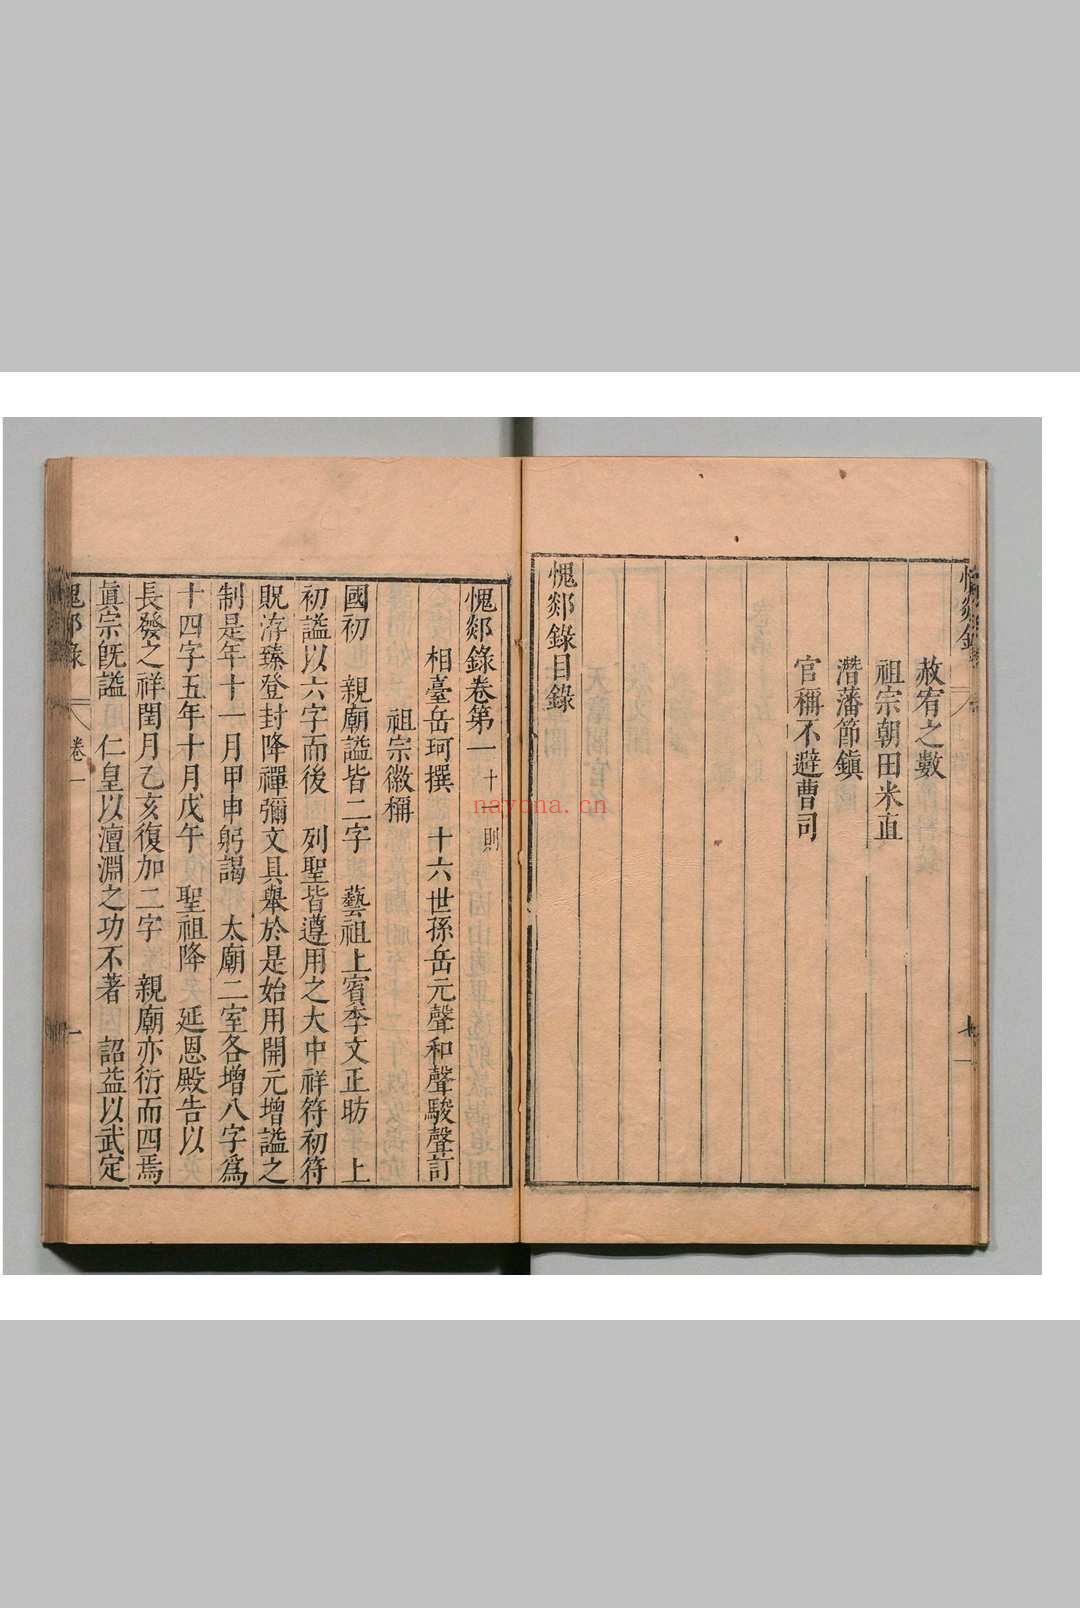 赦宥之數
祖宗朝田米直
潛藩節鎮
官稱不避曹司
愧郯錄目錄
愧郯錄卷第一 十一則
相臺岳珂撰 十六世孫岳元聲和聲駿聲訂
祖宗徽稱
國初 親廟諡皆二字 藝祖上賓李文正昉 上
初諡以六字而後 列聖皆遵用之大中祥符初符
貺洊臻登封降禪彌文具舉於是始用開元增諡之
制是年十一月甲申躬謁 太廟二室各增八字爲
十四字五年十月戊午 聖祖降 延恩殿告以
長發之祥閏月乙亥復加二字 親廟亦衍而四焉
眞宗旣諡 仁皇以澶淵之功不著 詔益以武定
卷一
nayona.cn